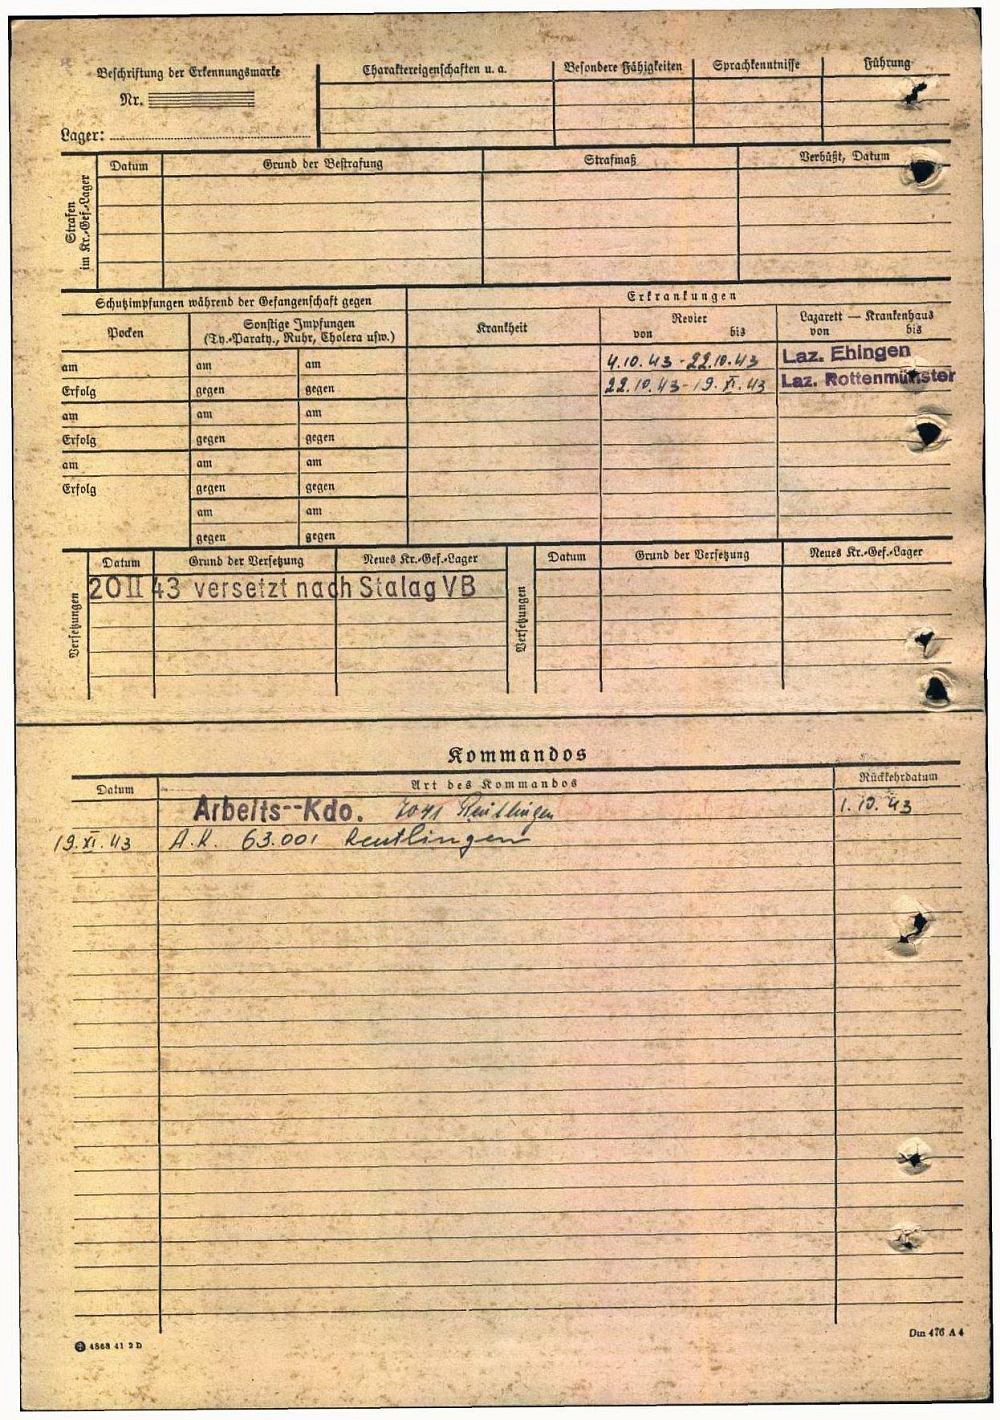 Beschriftung der Erkennungsmarke
Nr.
Lager:
Charaktereigenschaften u. a.
Besondere Fähigkeiten
Sprachkenntnisse
Führung
Strafen im Kr.-Gef.-Lager
Datum
Grund der Bestrafung
Strafmaß
Verbüßt, Datum
Schutzimpfungen während der Gefangenschaft gegen
Erkrankungen
Pocken
Sonstige Impfungen
(Ty.-Paraty., Ruhr, Cholera usw.)
Krankheit
Revier
von bis
Lazarett — Krankenhaus
von bis
am am am 4.10.43 - 22.10.43 Laz. Ehingen
Erfolg gegen gegen 22.10.43 - 19.XI.43 Laz. Rottenmünster
am am am
Erfolg gegen gegen
am am am
Erfolg gegen gegen
am am
gegen gegen
Versetzungen
Datum Grund der Versetzung Neues Kr.-Gef.-Lager
20 II 43 versetzt nach Stalag VB
Versetzungen
Datum Grund der Versetzung Neues Kr.-Gef.-Lager
Kommandos
Datum Art des Kommandos Rückkehrdatum
Arbeits--Kdo. Reutlingen 1.10.43
19.XI.43 A.K. 63.001 Reutlingen
4868 41 2 D
Din 476 A 4